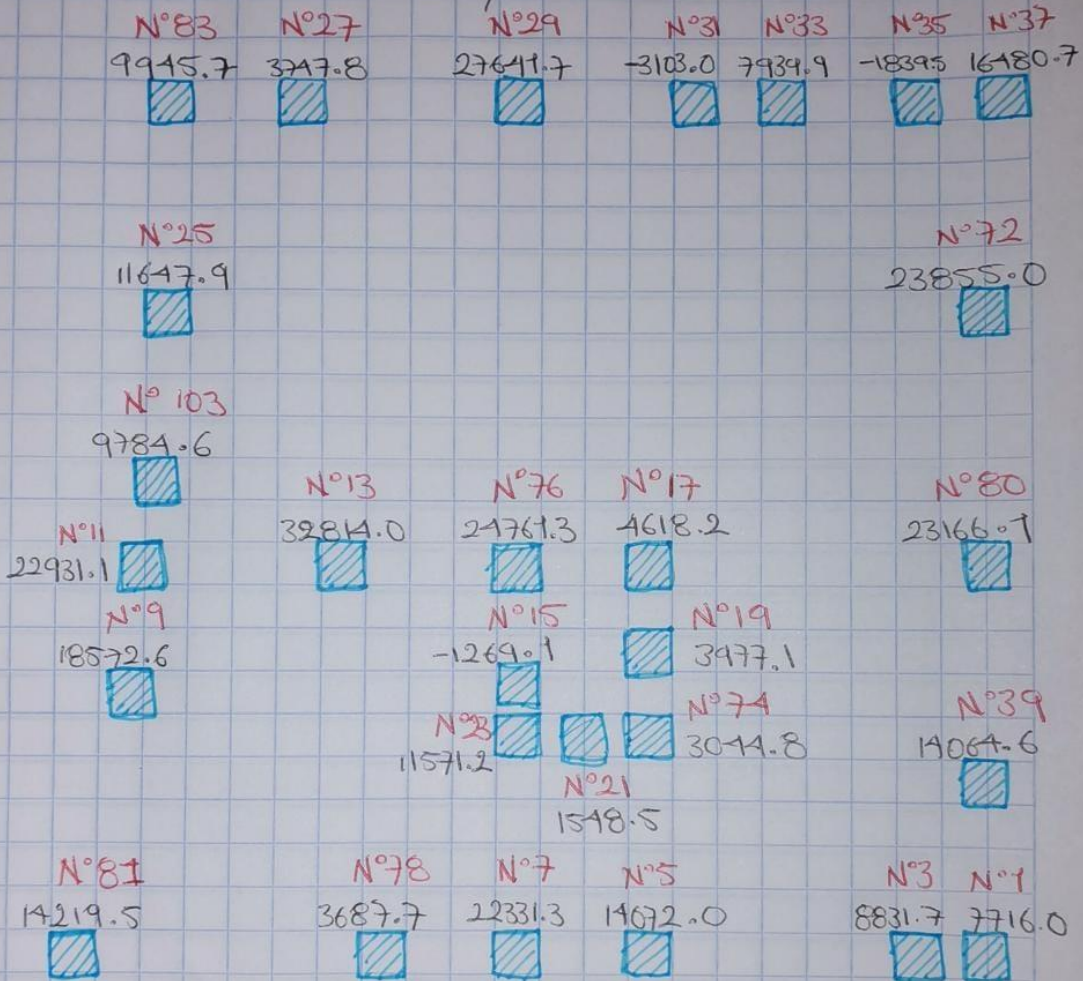 N°83 N°27 N°29 N°31 N°33 N°35 N°37
9945.7 3747.8 27641.7 -3103.0 7939.9 -18395 16480.7
N°25 N°72
11647.9 23855.0
N° 103
9784.6
N°13 N°76 N°17 N°80
32814.0 24761.3 4618.2 23166.1
N°11
22931.1
N°9 N°15 N°19
18572.6 -1269.1 3977.1
N°23 N°74 N°39
11571.2 3044.8 14064.6
N°21
1548.5
N°81 N°78 N°7 N°5 N°3 N°1
14219.5 3687.7 22331.3 14672.0 8831.7 7716.0